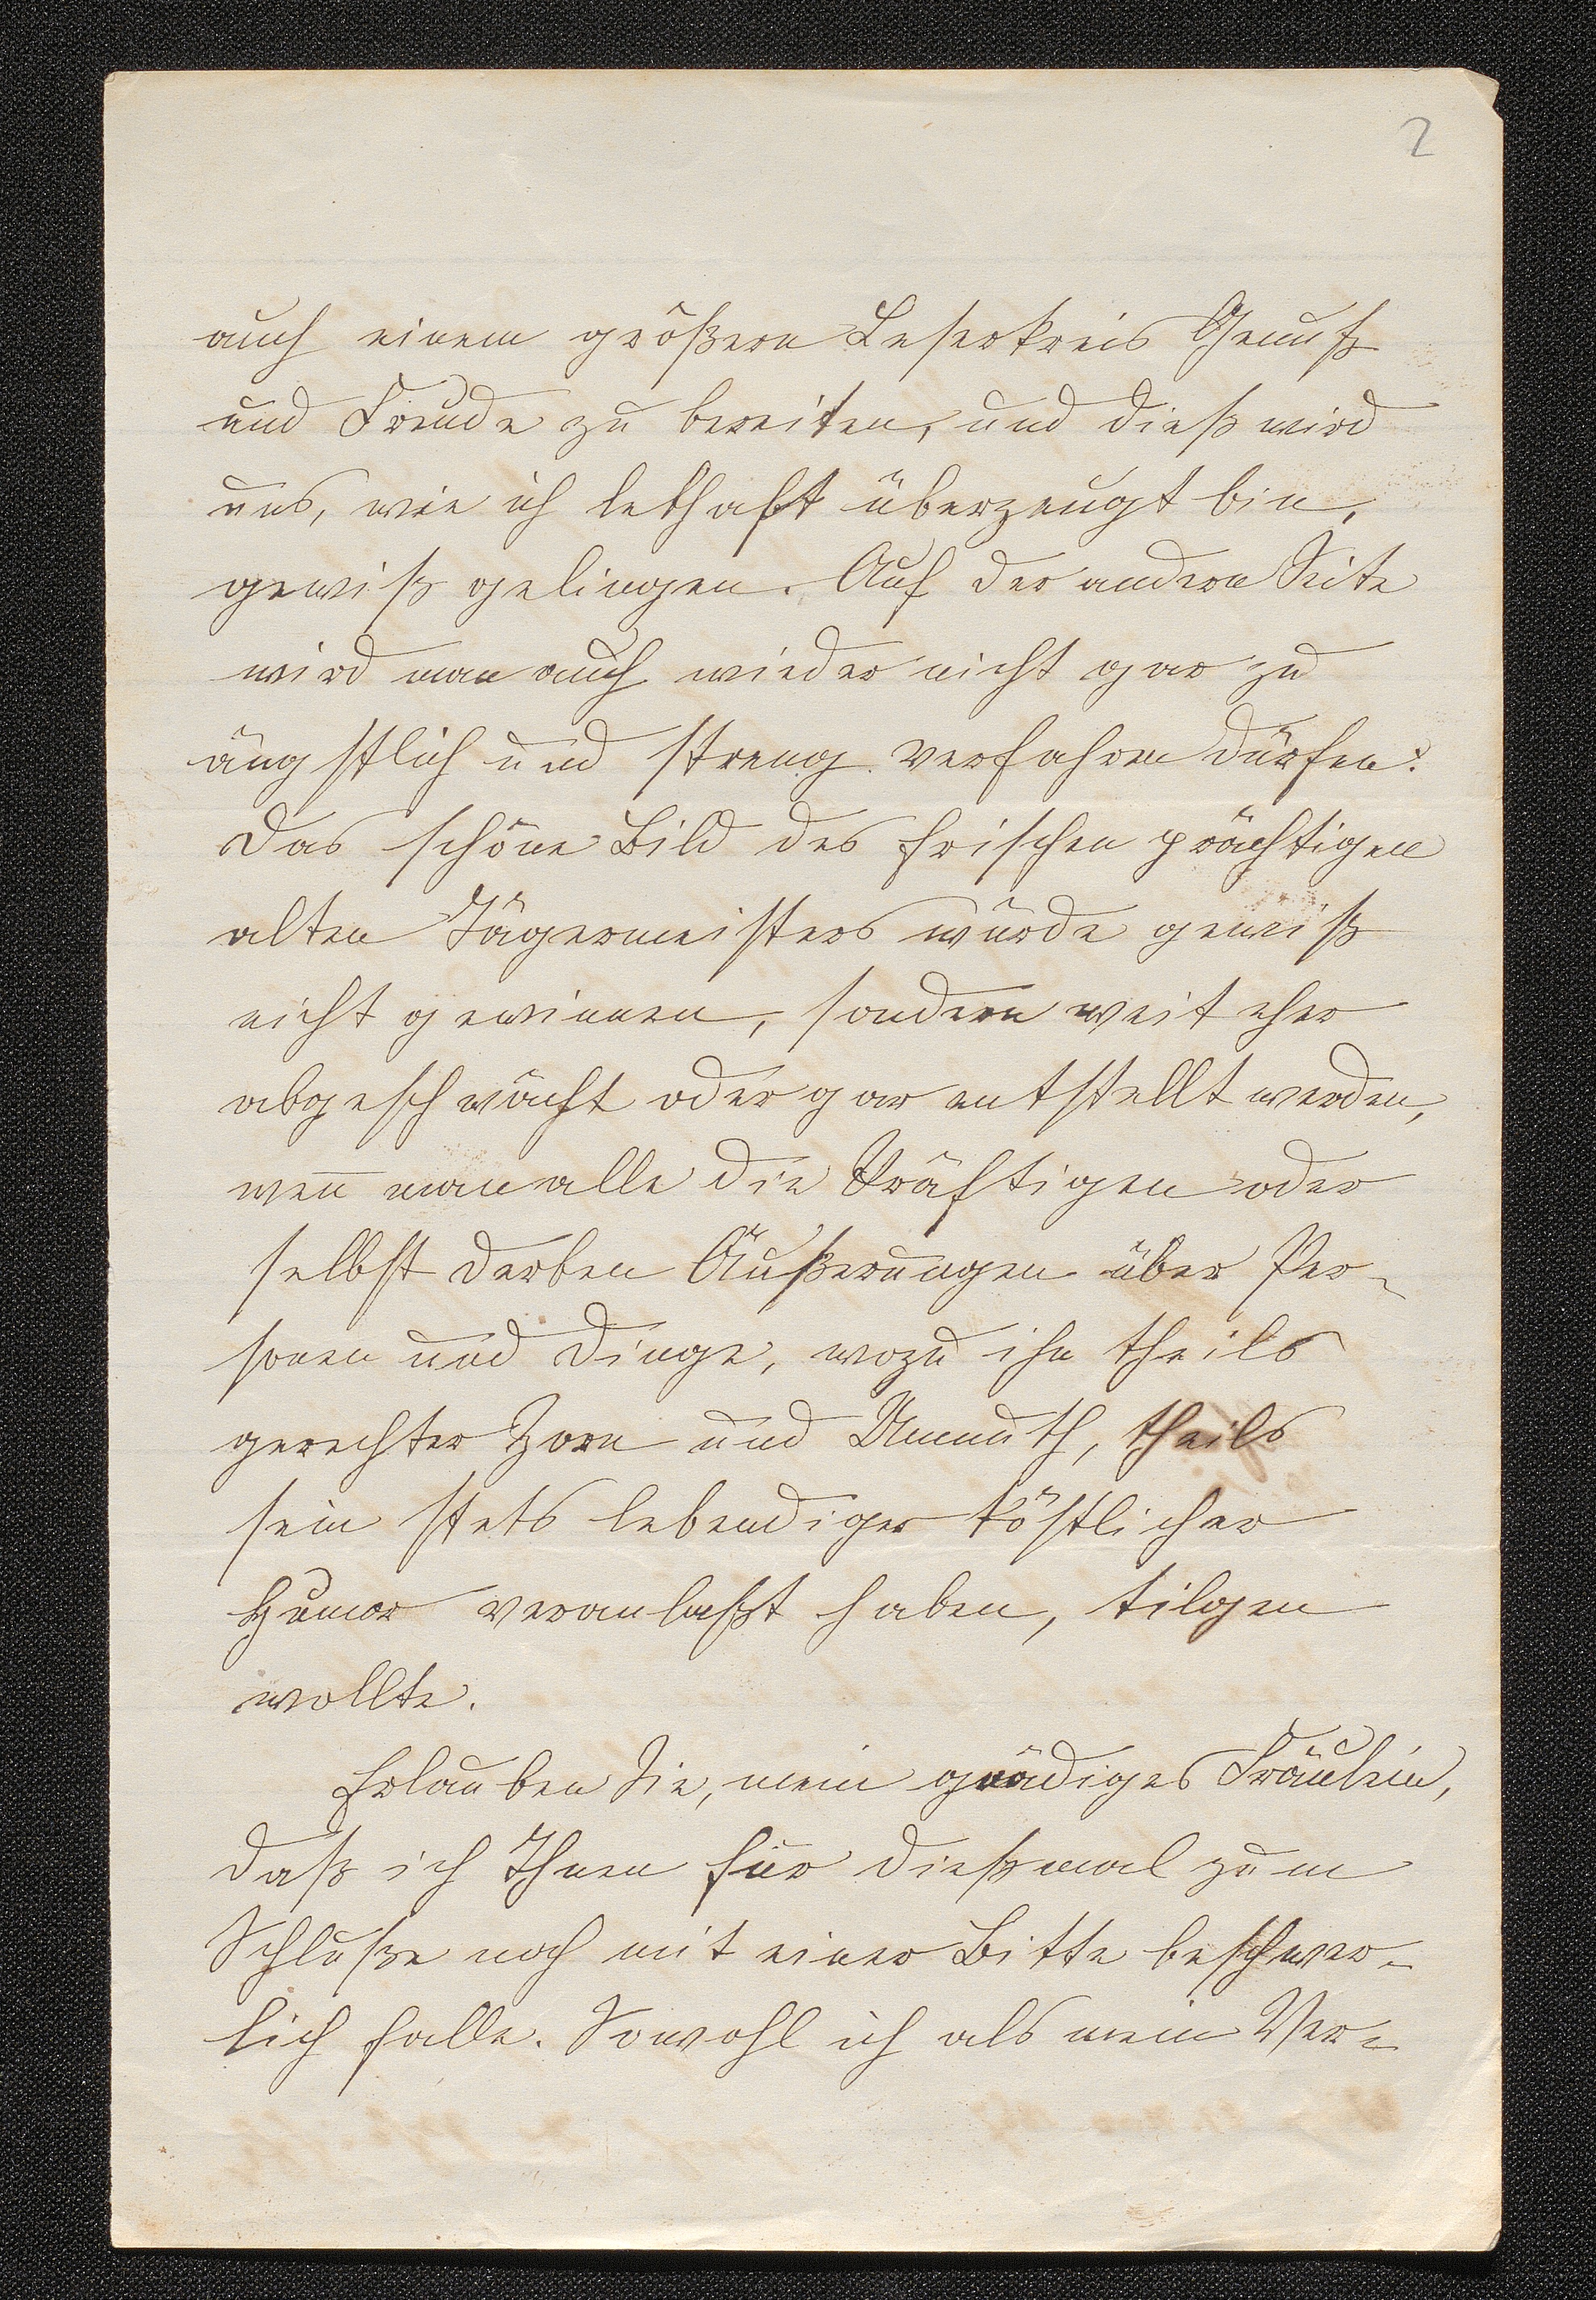 2
auch einem größern Leserkreis Genuß
und Freude zu bereiten, und dieß wird
uns, wie ich lebhaft überzeugt bin,
gewiß gelingen. Auf der andern Seite
wird man auch wieder nicht gar zu
ängstlich und streng verfahren dürfen:
das schöne Bild des frischen prächtigen
alten Jägermeisters würde gewiß
nicht gewinnen, sondern weit eher
abgeschwächt oder gar entstellt werden,
wen̅ man alle die kräftigen oder
selbst derben Äußerungen über Per-
sonen und Dinge, wozu ihn theils
gerechter Zorn und Unmuth, theils
sein stets lebendiger köstlicher
Humor veranlaßt haben, tilgen
wollte.
Erlauben Sie, mein gnädiges Fräulein,
daß ich Ihnen für dießmal zum
Schluße noch mit einer Bitte beschwer-
lich falle. Sowohl ich als mein Ver-